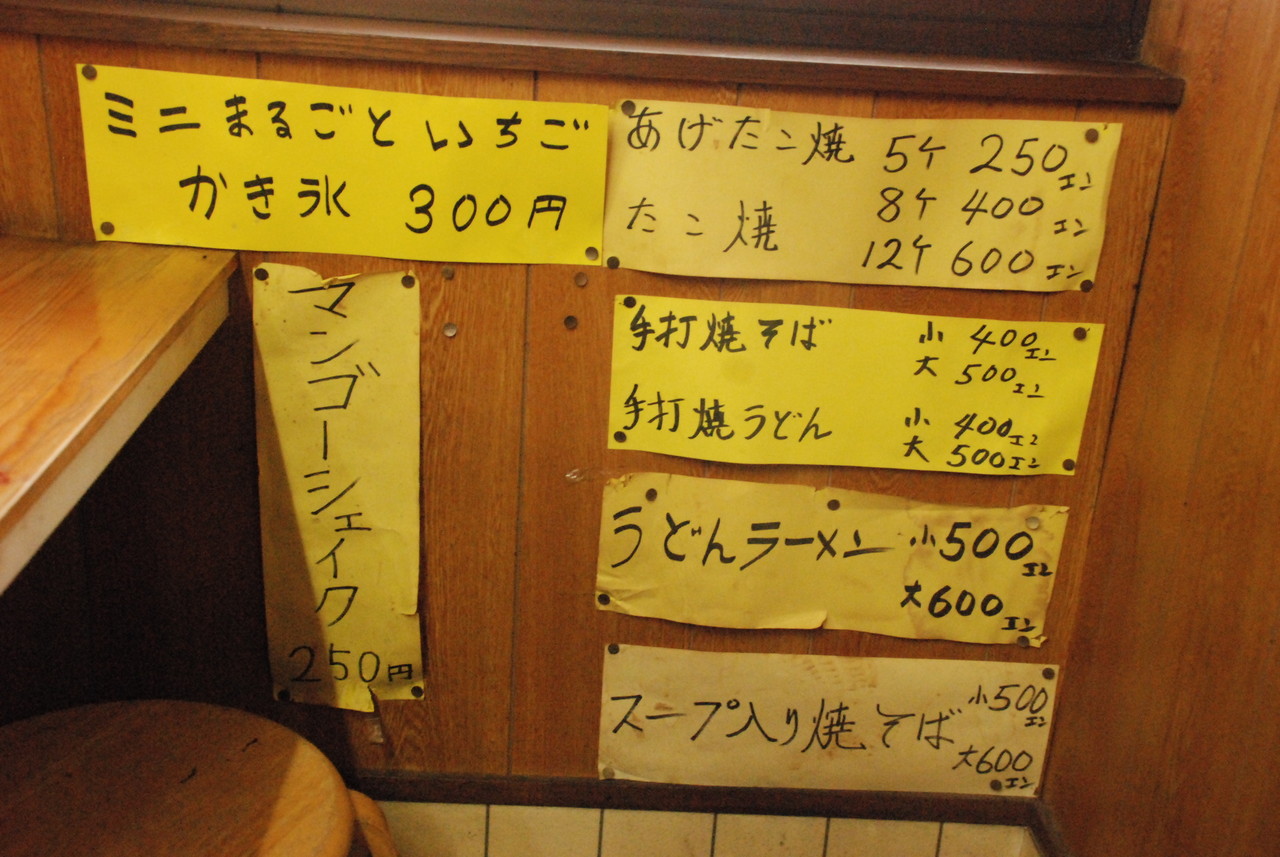 ミニまるごといちご
かき氷 300円
あげたこ焼 5ケ 250エン
8ケ 400エン
たこ焼
12ケ 600エン
マンゴーシェイク
250円
手打焼そば 小 400エン
大 500エン
手打焼うどん 小 400エン
大 500エン
うどんラーメン 小500エン
大600エン
スープ入り焼そば 小500エン
大600エン